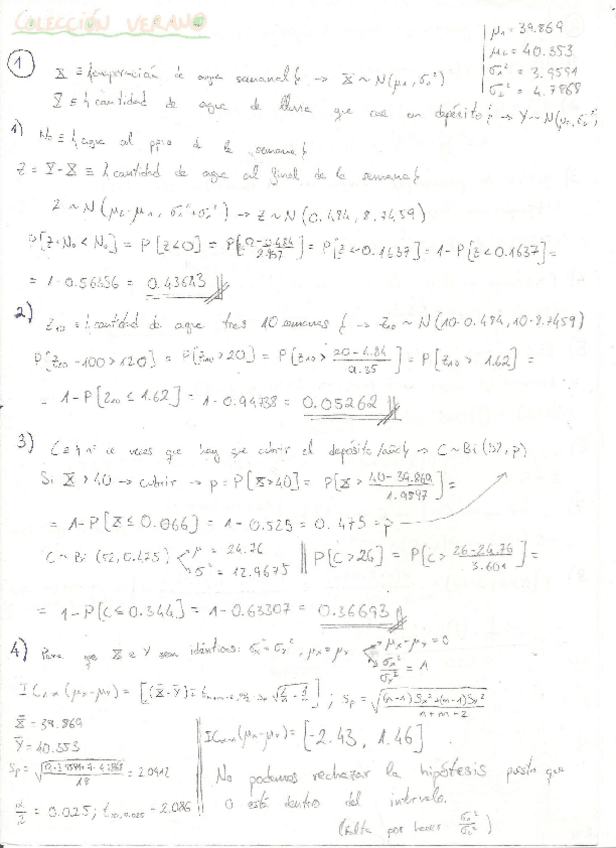 COLECCIÓN VERANO
μ₁ = 39.869
μ₂ = 40.353
σ₁² = 3.9591
σ₂² = 4.7868
1
X ≡ {evaporación de agua semanal} → X ~ N(μ₁, σ₁²)
Y ≡ {cantidad de agua de lluvia que cae en depósito} → Y ~ N(μ₂, σ₂²)
1) N₀ ≡ {agua al ppio de la semana}
Z = Y - X ≡ {cantidad de agua al final de la semana}
Z ~ N(μ₂-μ₁, σ₁²+σ₂²) → Z ~ N(0.484, 8.7459)
P[Z+N₀ < N₀] = P[Z<0] = P[(0-0.484)/2.957] = P[Z<-0.1637] = 1-P[Z<0.1637] =
= 1-0.56356 = 0.43643
2) Z₁₀ ≡ {cantidad de agua tres 10 semanas} → Z₁₀ ~ N(10·0.484, 10·8.7459)
P[Z₁₀ -100>120] = P[Z₁₀>20] = P[Z₁₀ > (20-4.84)/9.35] = P[Z₁₀ > 1.62] =
= 1-P[Z₁₀ ≤ 1.62] = 1-0.94738 = 0.05262
3) C ≡ {nº de veces que hay que cubrir el depósito/año} → C ~ Bi(52, p)
Si X > 40 → cubrir → p = P[X>40] = P[X > (40-39.869)/1.9897] =
= 1-P[X ≤ 0.066] = 1-0.525 = 0.475 = p
C ~ Bi(52, 0.475) μ = 24.76 σ² = 12.9675 || P[C>26] = P[C > (26-24.76)/3.601] =
= 1-P[C ≤ 0.344] = 1-0.63307 = 0.36693
4) Para que X e Y sean idénticas: σₓ² = σᵧ², μₓ = μᵧ μₓ-μᵧ = 0 σₓ²/σᵧ² = 1
; Sp = √(((n-1)Sₓ²+(m-1)Sᵧ²)/(n+m-2))
X̄ = 39.869
Ȳ = 40.353
= 2.0912
α/2 = 0.025; = 2.086
(μₓ-μᵧ) = [-2.43, 1.46]
No podemos rechazar la hipótesis puesto que
0 está dentro del intervalo.
(Falta por hacer σ₁²/σ₂²)